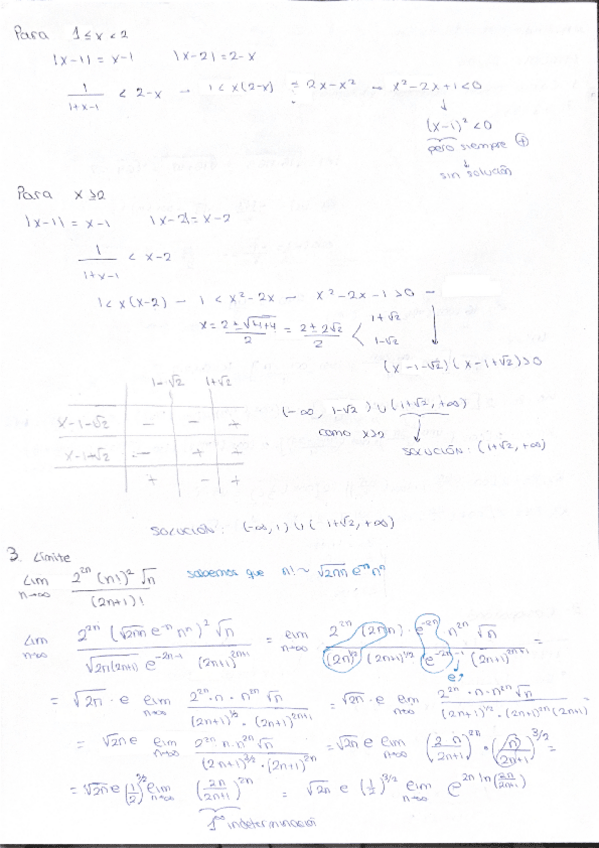 Para 1 ≤ x < 2
|x-1| = x-1 |x-2| = 2-x
1/(1+x-1) < 2-x → 1 < x(2-x) = 2x-x² → x²-2x+1<0
↓
(x-1)² < 0
pero siempre ⊕
↓
sin solución
Para x ≥ 2
|x-1| = x-1 |x-2| = x-2
1/(1+x-1) < x-2
1 < x(x-2) → 1 < x²-2x → x²-2x-1 > 0 →
x = (2±√(4+4))/2 = (2±2√2)/2 < 1+√2
1-√2
(x-1-√2)(x-1+√2)>0
1-√2 1+√2
x-1-√2 - - +
x-1+√2 - + +
+ - +
(-∞, 1-√2) ∪ (1+√2, +∞)
como x≥2
SOLUCIÓN: (1+√2, +∞)
SOLUCIÓN: (-∞, 1) ∪ (1+√2, +∞)
3. Límite
lim n→∞ 2²ⁿ (n!)² √n / (2n+1)! sabemos que n! ~ √2πn e⁻ⁿ nⁿ
lim n→∞ 2²ⁿ (√2πn e⁻ⁿ nⁿ)² √n / √2π(2n+1) e⁻²ⁿ⁻¹ (2n+1)²ⁿ⁺¹ = lim n→∞ 2²ⁿ (2πn) · e⁻²ⁿ n²ⁿ √n / (2π)^1/2 (2n+1)^1/2 (e⁻²ⁿ)⁻¹ (2n+1)²ⁿ⁺¹ =
= √2π · e lim n→∞ 2²ⁿ · n · n²ⁿ √n / (2n+1)^1/2 · (2n+1)²ⁿ⁺¹ = √2π · e lim n→∞ 2²ⁿ · n · n²ⁿ √n / (2n+1)^1/2 · (2n+1)²ⁿ (2n+1)
= √2π e lim n→∞ 2²ⁿ n · n²ⁿ √n / (2n+1)^3/2 · (2n+1)²ⁿ = √2π e lim n→∞ (2n/2n+1)²ⁿ · (n/2n+1)^3/2 =
= √2π e (1/2)^3/2 lim n→∞ (2n/2n+1)²ⁿ = √2π e (1/2)^3/2 lim n→∞ e^2n ln(2n/2n+1)
1^∞ indeterminación